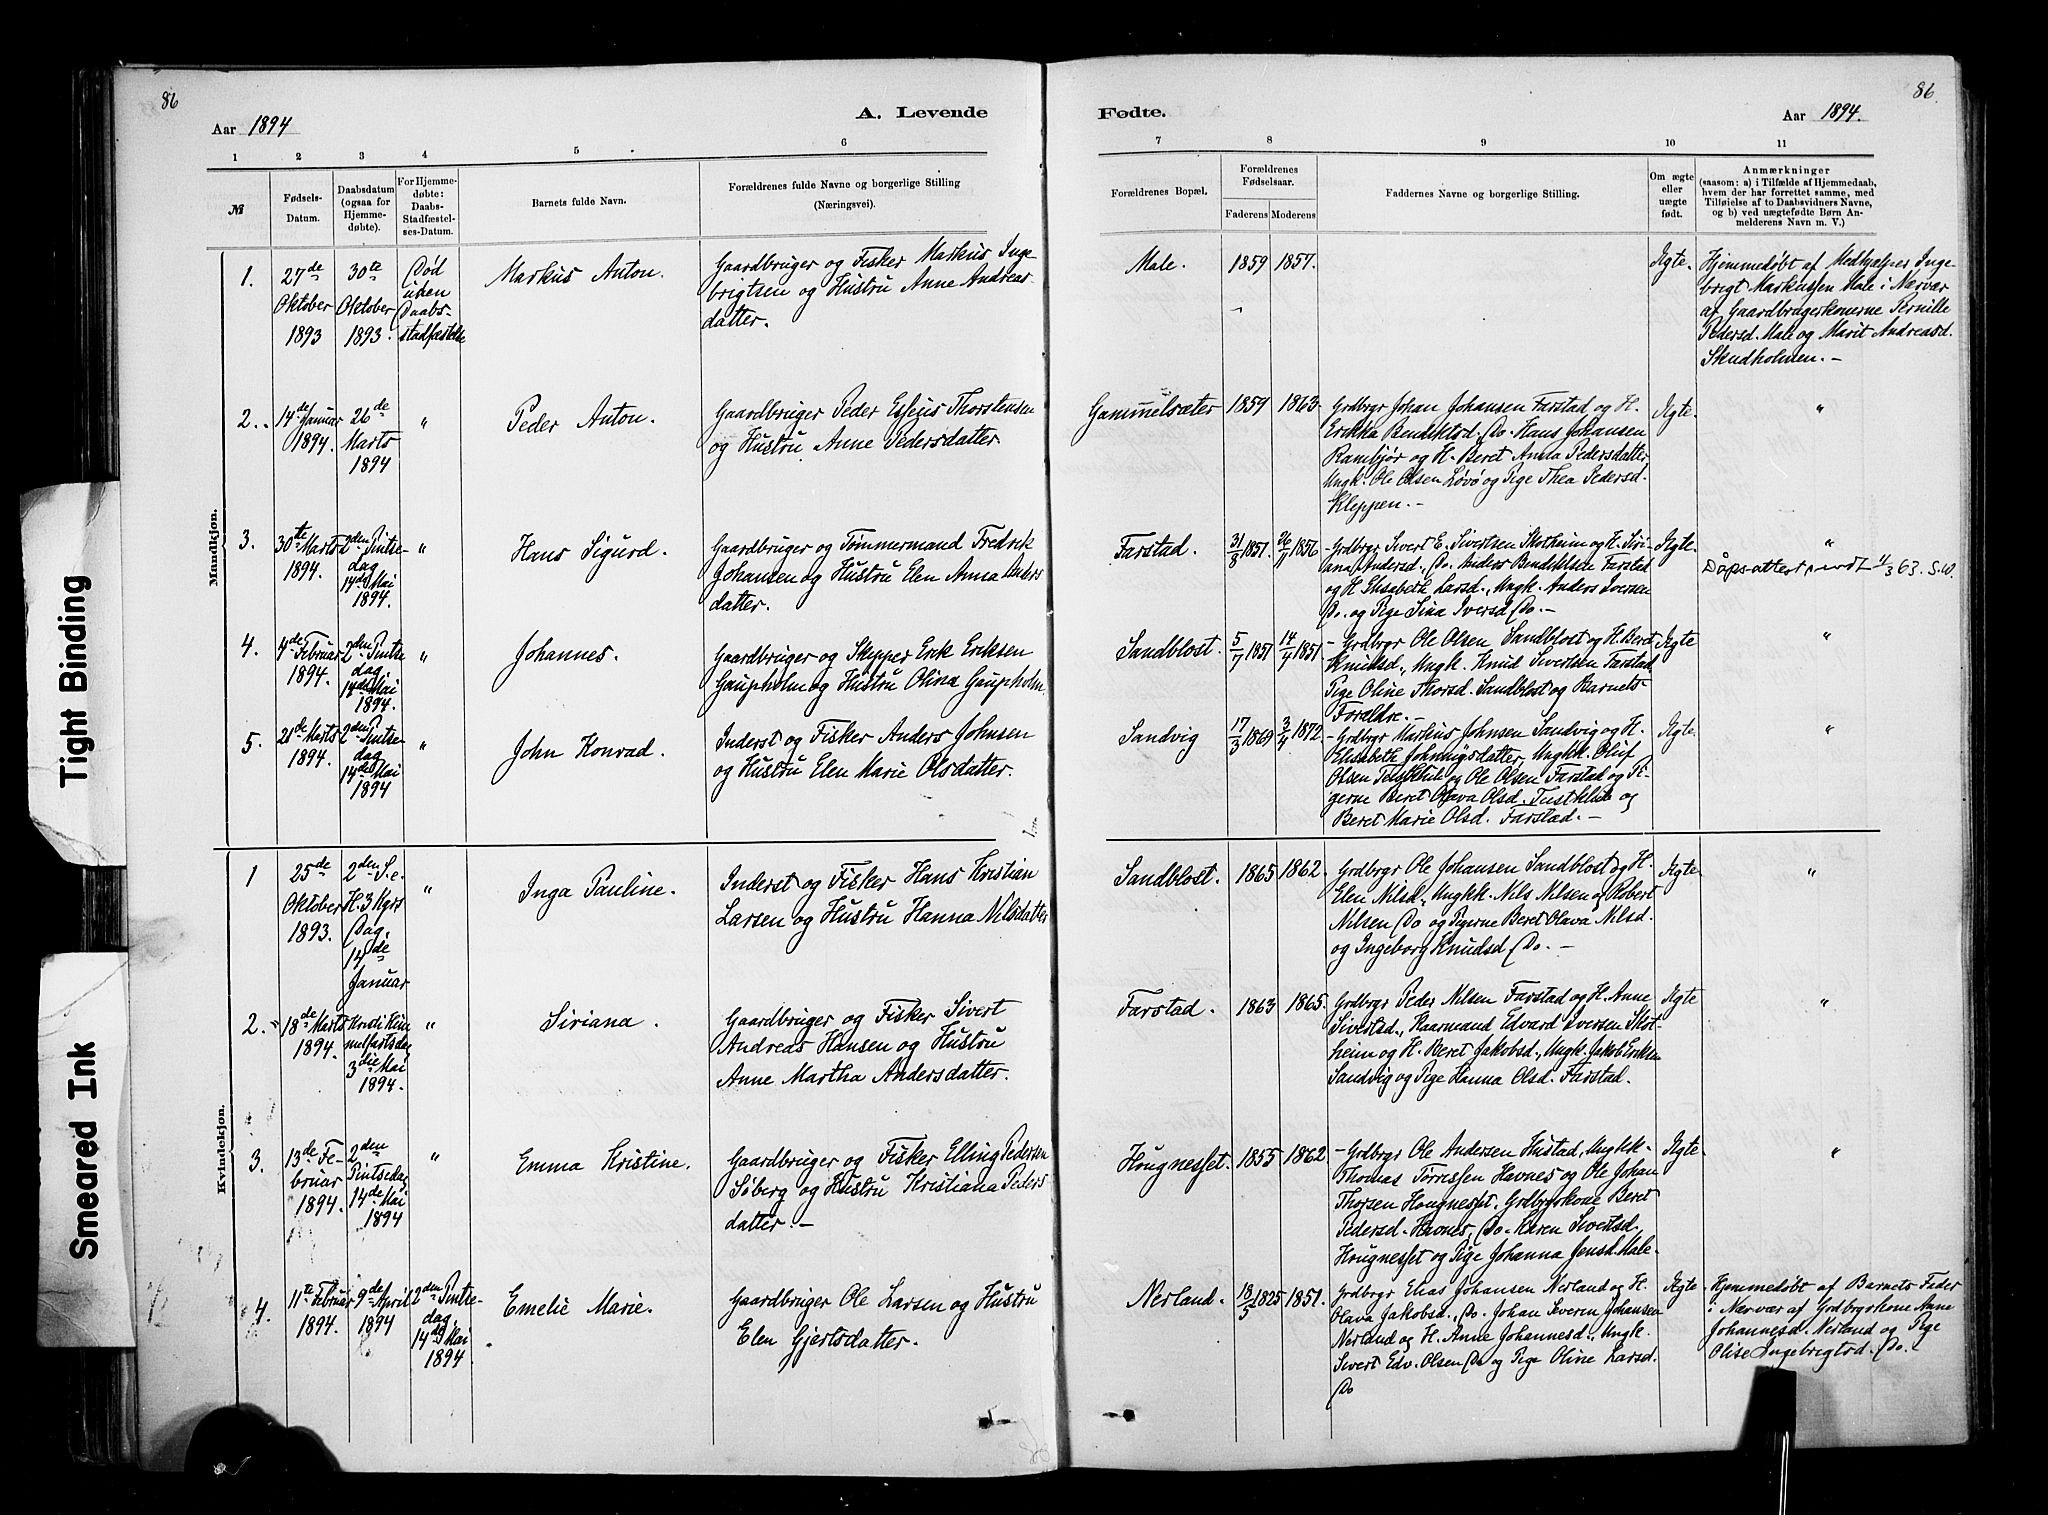 86
Aar 1894
A. Levende
1 2 3 4 5 6
№
Fødsels-
Datum.
Daabsdatum
(ogsaa for
Hjemme-
døbte).
For Hjemme-
døbte:
Daabs-
Stadfæstel-
ses-Datum.
Barnets fulde Navn.
Forældrenes fulde Navne og borgerlige Stilling
(Næringsvei).
Mandkjøn.
1.
27de
Oktober
1893
30te
Oktober
1893.
Død
uden
Daabs-
stadfæstelse
Markus Anton.
Gaardbruger og Fisker Markus Inge
brigtsen og Hustru Anne Andreas
datter.
2.
14de Januar
1894.
26de
Marts
1894
"
Peder Anton.
Gaardbruger Peder Esseus Thorstensen
og Hustru Anne Pedersdatter
3.
30te Marts
1894.
2den Pintse-
dag
14de Mai
1894.
"
Hans Sigurd.
Gaardbruger og Tømmermand Fredrik
Johansen og Hustru Elen Anna Anders
datter.
4.
4de Februar
1894.
2den Pintse
dag
14de Mai
1894.
"
Johannes.
Gaardbruger og Skipper Erik Eriksen
Gaupholm og Hustru Olina Gaupholm.
5.
21de Marts
1894.
2den Pintse-
dag
14de Mai
1894
"
John Konrad.
Inderst og Fisker Anders Johnsen
og Hustru Elen Marie Olsdatter.
Kvindekjøn.
1
25de
Oktober
1893.
2den S. e.
H. 3 Kgrs
Dag.
14de
Januar
"
Inga Pauline.
Inderst og Fisker Hans Kristian
Larsen og Hustru Hanna Nilsdatter
2.
18de Marts
1894.
Kristi Him
melfartsdag
3die Mai
1894.
"
Siriana.
Gaardbruger og Fisker Sivert
Andreas Hansen og Hustru
Anne Martha Andersdatter.
3.
13de Fe-
bruar
1894.
2den
Pintsedag
14de Mai
1894
"
Emma Kristine.
Gaardbruger og Fisker Elling Pedersen
Søberg og Hustru Kristiana Peders
datter.-
4.
11te Februar
1894.
9de April
1894
2den Pintse-
dag.
14de Mai
1894
Emelie Marie.
Gaardbruger Ole Larsen og Hustru
Elen Gjertsdatter.
Fødte.
Aar 1894.
86.
7 8 9 10 11
Forældrenes Bopæl.
Forældrenes
Fødselsaar.
Faderens Moderens
Faddernes Navne og borgerlige Stilling.
Om ægte
eller
uægte
født.
Anmærkninger
(saasom: a) i Tilfælde af Hjemmedaab,
hvem der har forrettet samme, med
Tilføielse af to Daabsvidners Navne,
og b) ved uægtefødte Børn An-
melderens Navn m. V.)
Male.
1859 1857.
Ægte.
Hjemmedøbt af Medhjælper Inge
brigt Markussen Male i Nærvær
af Gaardbrugerkonerne Pernille
Pedersd. Male og Marit Andreasd.
Skudholmen.-
Gammelsæter
1859 1863
Grdbrgr Johan Johansen Farstad og H.
Erikka Bendiktsd. Do. Hans Johansen
Rambjør og H. Beret Anna Pedersdatter
Ungk. Ole Olsen Løvø og Pige Thea Pedersd.
Kleppen.-
Ægte.
"
Farstad.
31/8 1851. 26/11 1856
-Grdbrgr Sivert E. Sivertsen Skotheim og H. Siri-
ana Andersd., Do. Anders Bendiktsen Farstad
og H. Elisabeth Larsd., Ungk. Anders Iversen
Do. og Pige Sina Iversd. Do.-
Ægte.
"
Dåpsattest 4/3 63. S.W.
Sandblost.
5/7 1851 14/4 1851
-Grdbrgr Ole Olsen Sandblost og H. Beret
Knudsd., Ungk. Knud Sivertsen Farstad,
Pige Oline Thorsd. Sandblost og Barnets
Forældre.-
Ægte
"
Sandvig
17/3 1869 3/4 1872
-Grdbrgr Markus Johnsen Sandvig og H.
Elisabeth Datter, Ungkk. Oluf
Olsen Tustklub og Ole Olsen Farstad og Pi-
gerne Beret Olava Olsd. Tustklub og
Beret Marie Olsd. Farstad.-
Ægte.
"
Sandblost.
1865 1862
Grdbrgr Ole Johansen Sandblost og H.
Elen Nilsd., Ungkk. Nils Nilsen og Robert
Nilsen Do og Pigerne Beret Olava Nilsd.
og Ingeborg Knudsd. Do.-
Ægte.
"
Farstad.
1863 1865.
Grdbrgr Peder Nilsen Farstad og H. Anne
Sivertsd., Kaarmand Edvard Iversen Skot-
heim og H. Beret Jakobsd., Ungk. Jakob Eriksen
Sandvig og Pige Hanna Olsd. Farstad.
Ægte
"
Hougnesset.
1855 1862
-Grdbrgr Ole Andersen Hustad, Ungkk-
Thomas Tørressen Havnes og Ole Johan
Thorsen Hougnesset. Grdbrgrkone Beret
Pedersd. Havnes, Do. Karen Sivertsd.
Hougnesset og Pige Johanna Jensd. Male.
Ægte.
"
Nerland.
18/5 1825 1851.
Grdbrgr Elias Johansen Nerland og H.
Olava Jakobsd., Do. Johan Severin Johansen
Nerland og H. Anne Johannesd., Ungk.
Sivert Edv. Olsen Do og Pige Oline Larsd.
Do
Ægte
Hjemmedøbt af Barnets Fader
i Nærvær af Grdbrgrkone Anne
Johannesd. Nerland og Pige
Olise Ingebrigtsd. Do.
Tight Binding
Smeared Ink